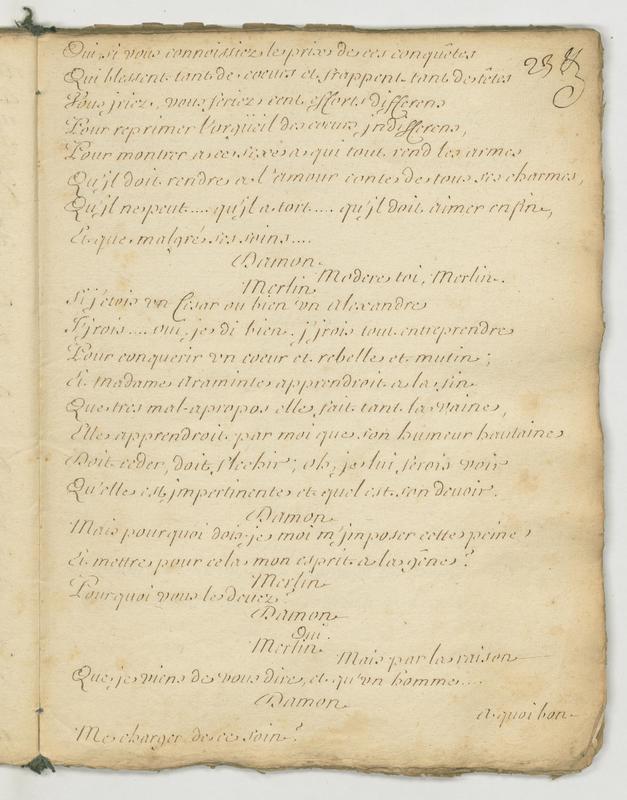 Oui si vous connoissiez le prix de ces conquêtes
Qui blessent tant de coeurs et frappent tant de têtes
Vous jriez, vous feriez cent efforts differens
Pour reprimer l'orgüeil des coeurs jndifferens,
Pour montrer a ce sexe a qui tout rend les armes
Qu'jl doit rendre a l'amour conte de tous ses charmes,
Qu'jl ne peut.... qu'jl a tort.... qu'jl doit aimer enfin,
Et que malgré ses soins....
Damon
Modere toi, Merlin.
Merlin
Si j'etois vn Cesar ou bien vn alexandre
J'jrois.... oui, je di bien. j'jrois tout entreprendre
Pour conquerir vn coeur et rebelle et mutin;
Et madame araminte apprendroit a la fin
Que tres mal-apropos elle fait tant la vaine,
Elle apprendroit par moi que son humeur hautaine
Doit ceder, doit flechir; oh, je lui ferois voir
Qu'elle est jmpertinente et quel est son devoir.
Damon
Mais pourquoi dois-je moi m'jmposer cette peine
Et mettre pour cela mon esprit a la gêne?
Merlin
Pourquoi vous le devez?
Damon
Oui.
Merlin
Mais par la raison
Que je viens de vous dire, et qu'vn homme....
Damon
a quoi bon
Me charger de ce soin?